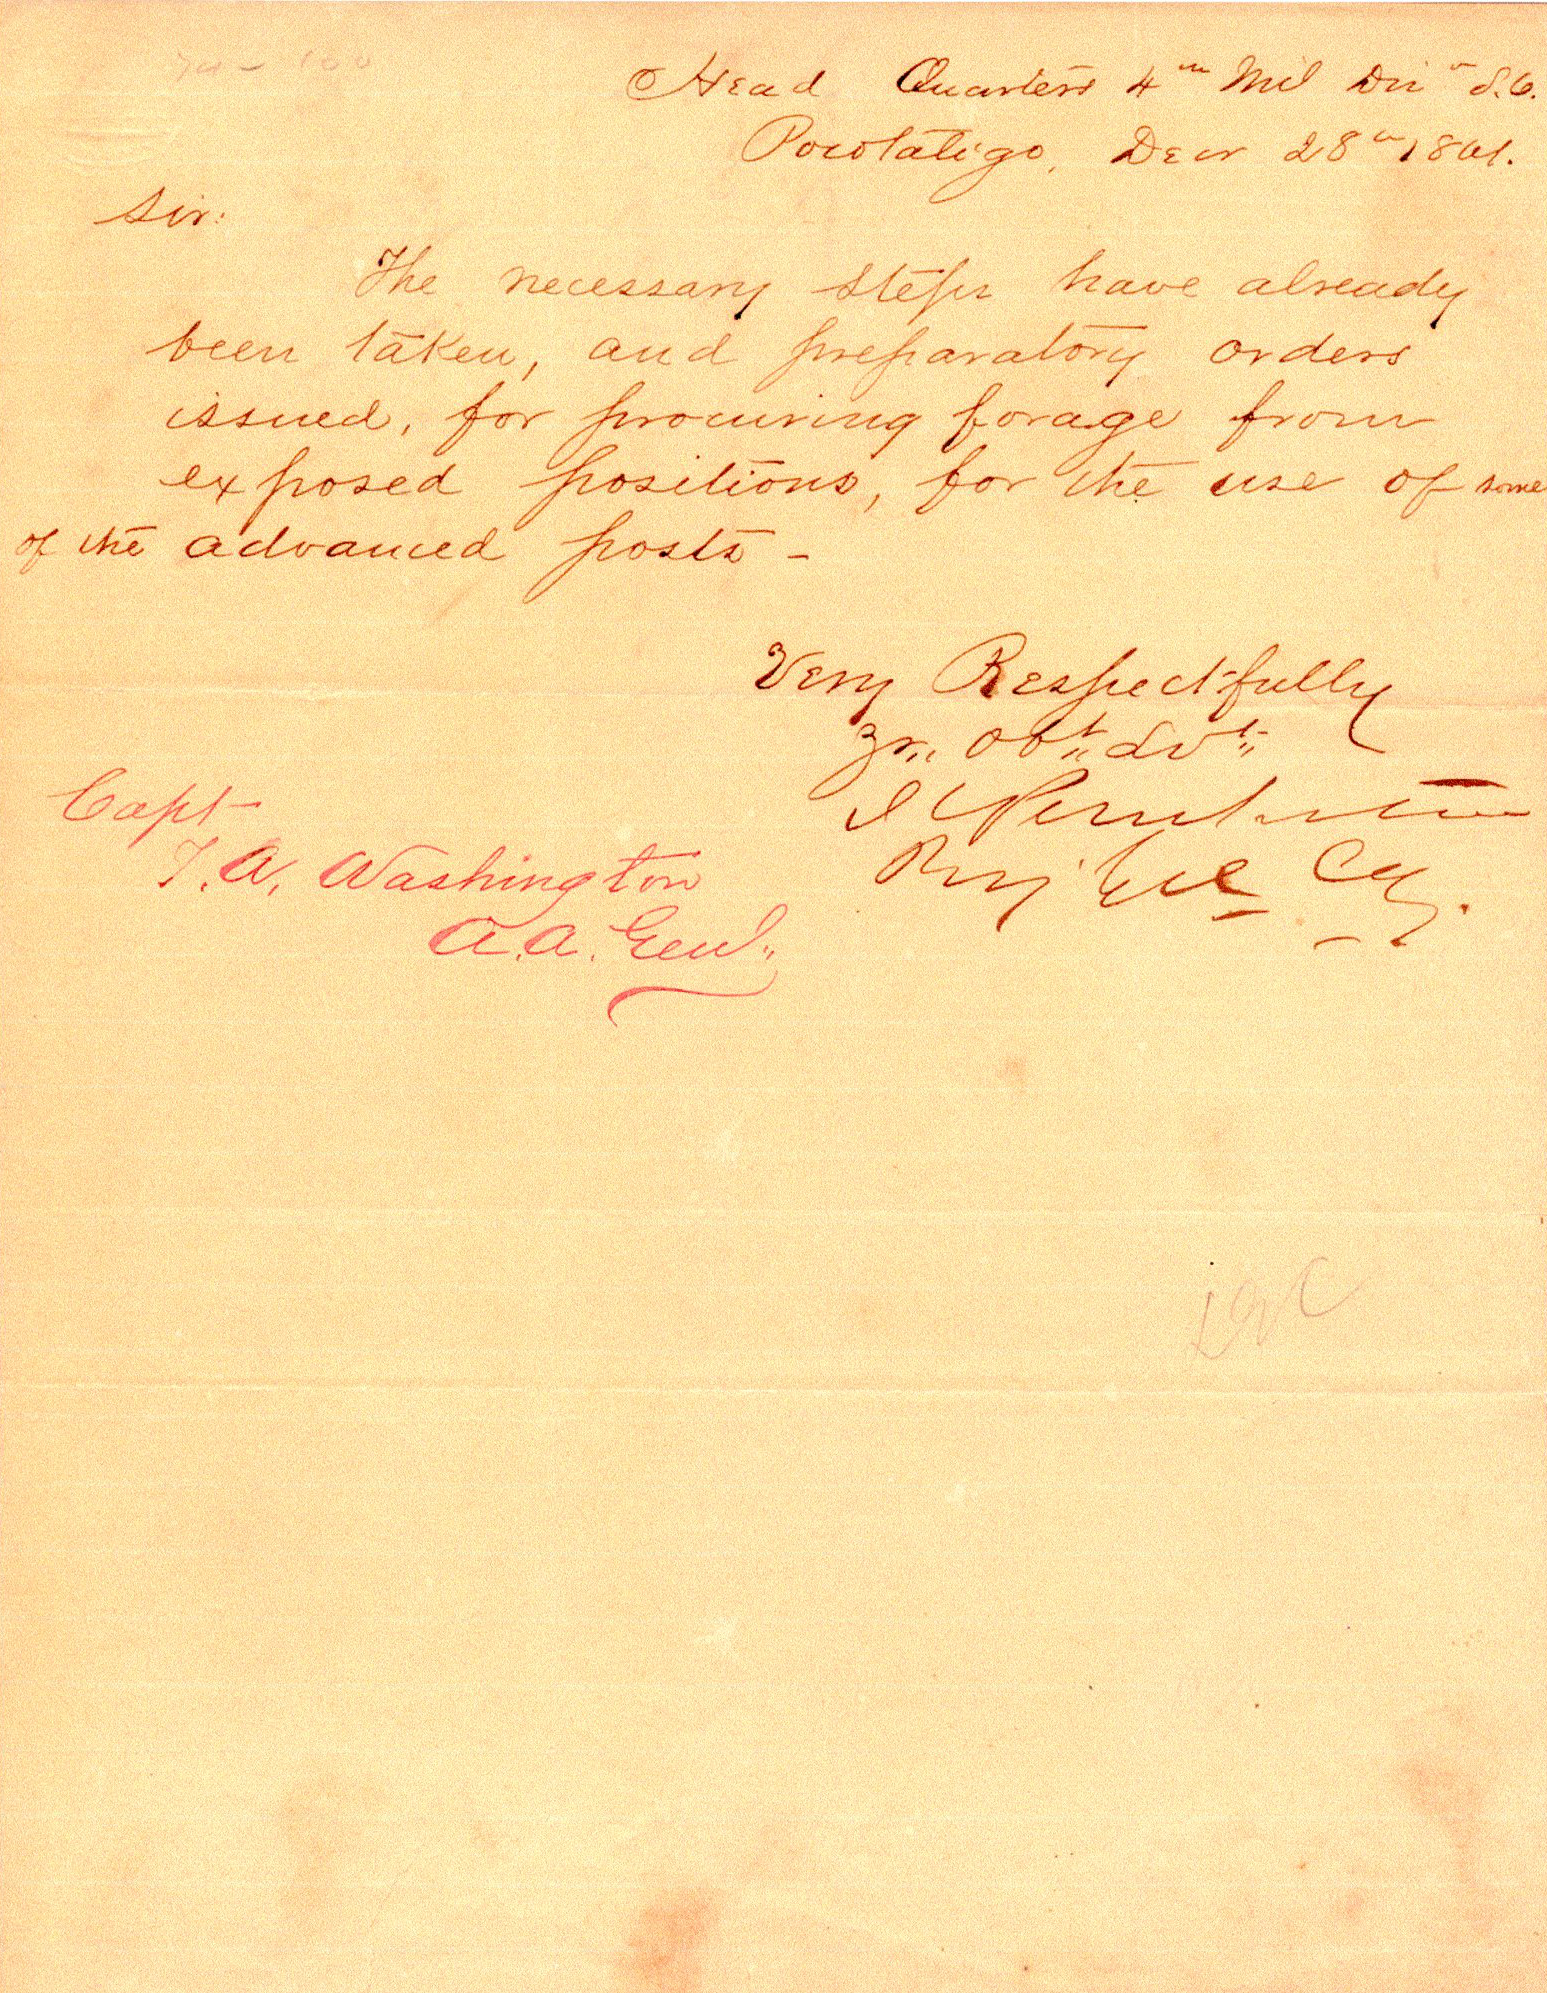 Head Quarters 4th Mil Divn S.C.
Pocotaligo, Decr 28th 1861.
Sir:
The necessary steps have already
been taken, and preparatory orders
issued, for procuring forage from
exposed positions, for the use of some
of the advanced posts -
Very Respectfully
Yr,, Obt,, Svt,,
J C Pemberton
Brig Genl Cg.
Capt
T. A. Washington
A. A. Genl,,